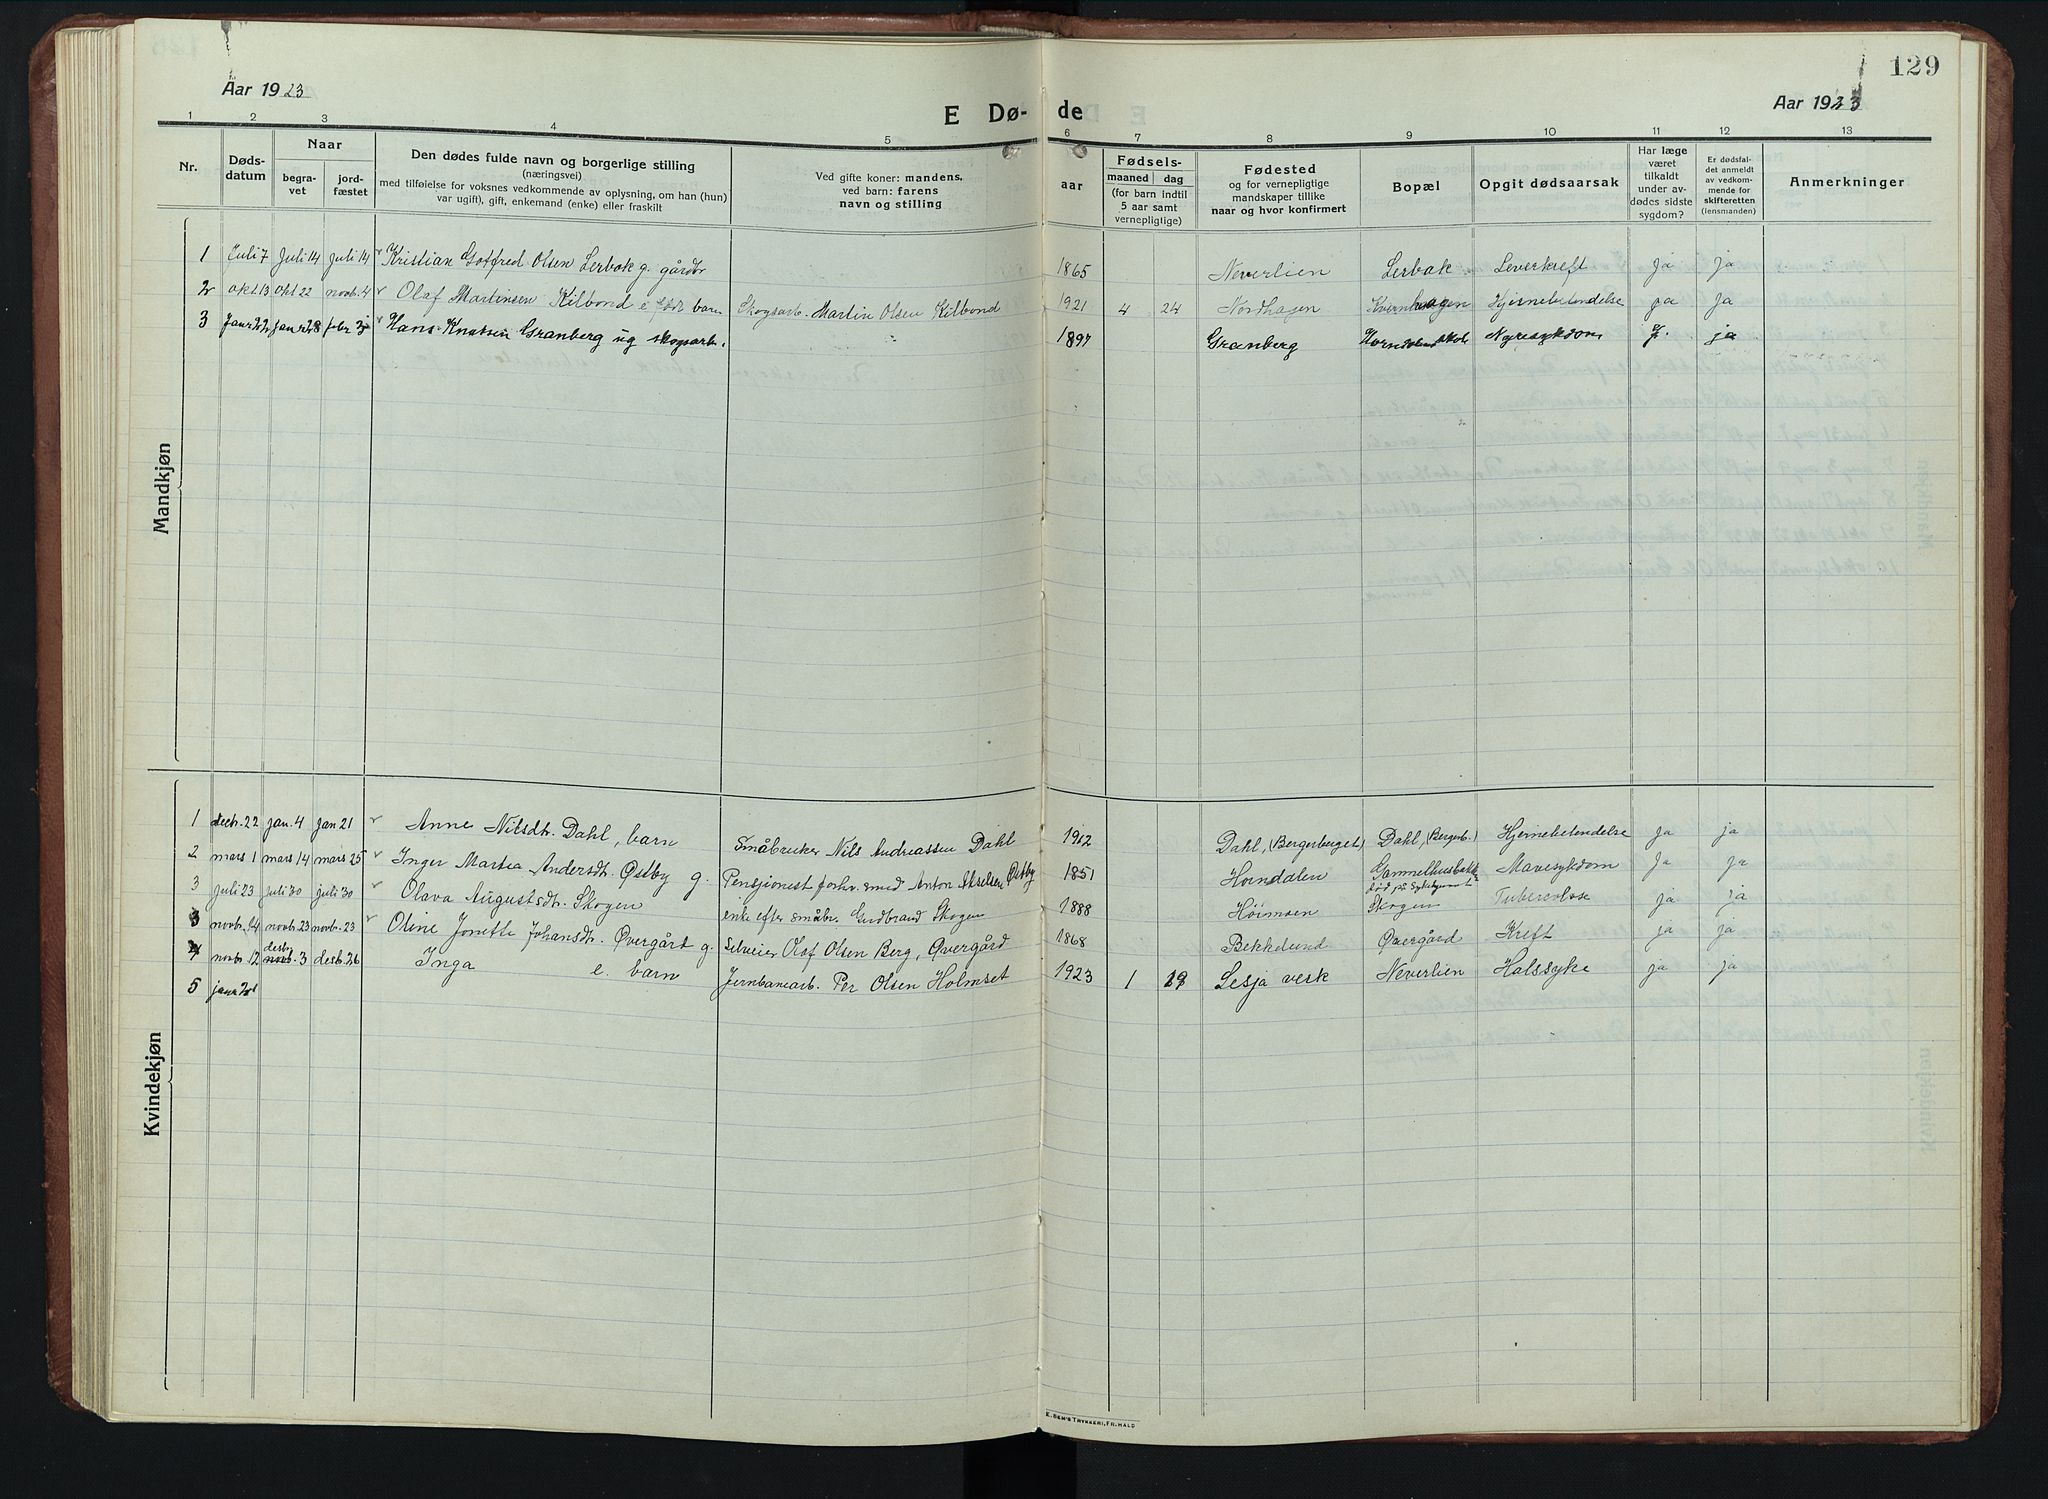 129
Aar 1923
Aar 1923
E Dø- de
1 2 3 4 5 6 7 8 9 10 11 12 13
Nr.
Døds-
datum
Naar
begra-
vet
jord-
fæstet
Den dødes fulde navn og borgerlige stilling
(næringsvei)
med tilføielse for voksnes vedkommende av oplysning, om han (hun)
var ugift), gift, enkemand (enke) eller fraskilt
Ved gifte koner: mandens,
ved barn: farens
navn og stilling
aar
Fødsels-
maaned dag
(for barn indtil
5 aar samt
vernepligtige)
Fødested
og for vernepligtige
mandskaper tillike
naar og hvor konfirmert
Bopæl
Opgit dødsaarsak
Har læge
været
tilkaldt
under av-
dødes sidste
sygdom?
Er dødsfal-
det anmeldt
av vedkom-
mende for
skifteretten
(lensmanden)
Anmerkninger
Mandkjøn
1 Juli 7 Juli 14 juli 14 Kristian Gotfred Olsen Lerbak g. gårdbr 1865 Neverlien Lerbak Leverkreft Ja ja
2 okt 13 okt 22 novb. 4 Olaf Martinsen Kilbond e født barn Skogsarb. Martin Olsen Kilbond 1921 4 24 Nordhagen Kvernhaagen Hjernebetendelse ja ja
3 Hans Knutsen Granberg ug skogsarb. 1897 Granberg Nyresykdom ja
Kvindekjøn
1 decbr. 22 jan. 4 jan 21 Anne Nilsdtr. Dahl, barn Småbruker Nils Andreassen Dahl 1912 Dahl, (Bergerberget) Dahl, (Bergerb.) Hjernebetendelse ja ja
2 mars 1 mars 14 mars 25 Inger Martea Andersdt. Østby g. Pensjonist forhv. smed Anton Akselsen Østby 1851 Horndalen Gammelhusbakk Mavesykdom ja ja
3 juli 23 juli 30 juli 30 Olava Augustsdtr. Skogen enke efter småbr. Gudbrand Skogen 1888 Høimoen død på Sykehjemmet Skogen Tuberculose ja ja
novbr. 14 novbr. 23 novbr. 23 Oline Jonette Johansdtr. Øvergård g. Selveier Olaf Olsen Berg, Øvergård 1868 Bekkelund Øvergård Kreft ja ja
4 novbr. 12 desbr. 3 desb. 26 Inga e. barn Jernbanearb. Per Olsen Holmset 1923 1 29 Lesja verk Neverlien Halssyke ja ja
5
E. SEM'S TRYKKERI, FR.HALD